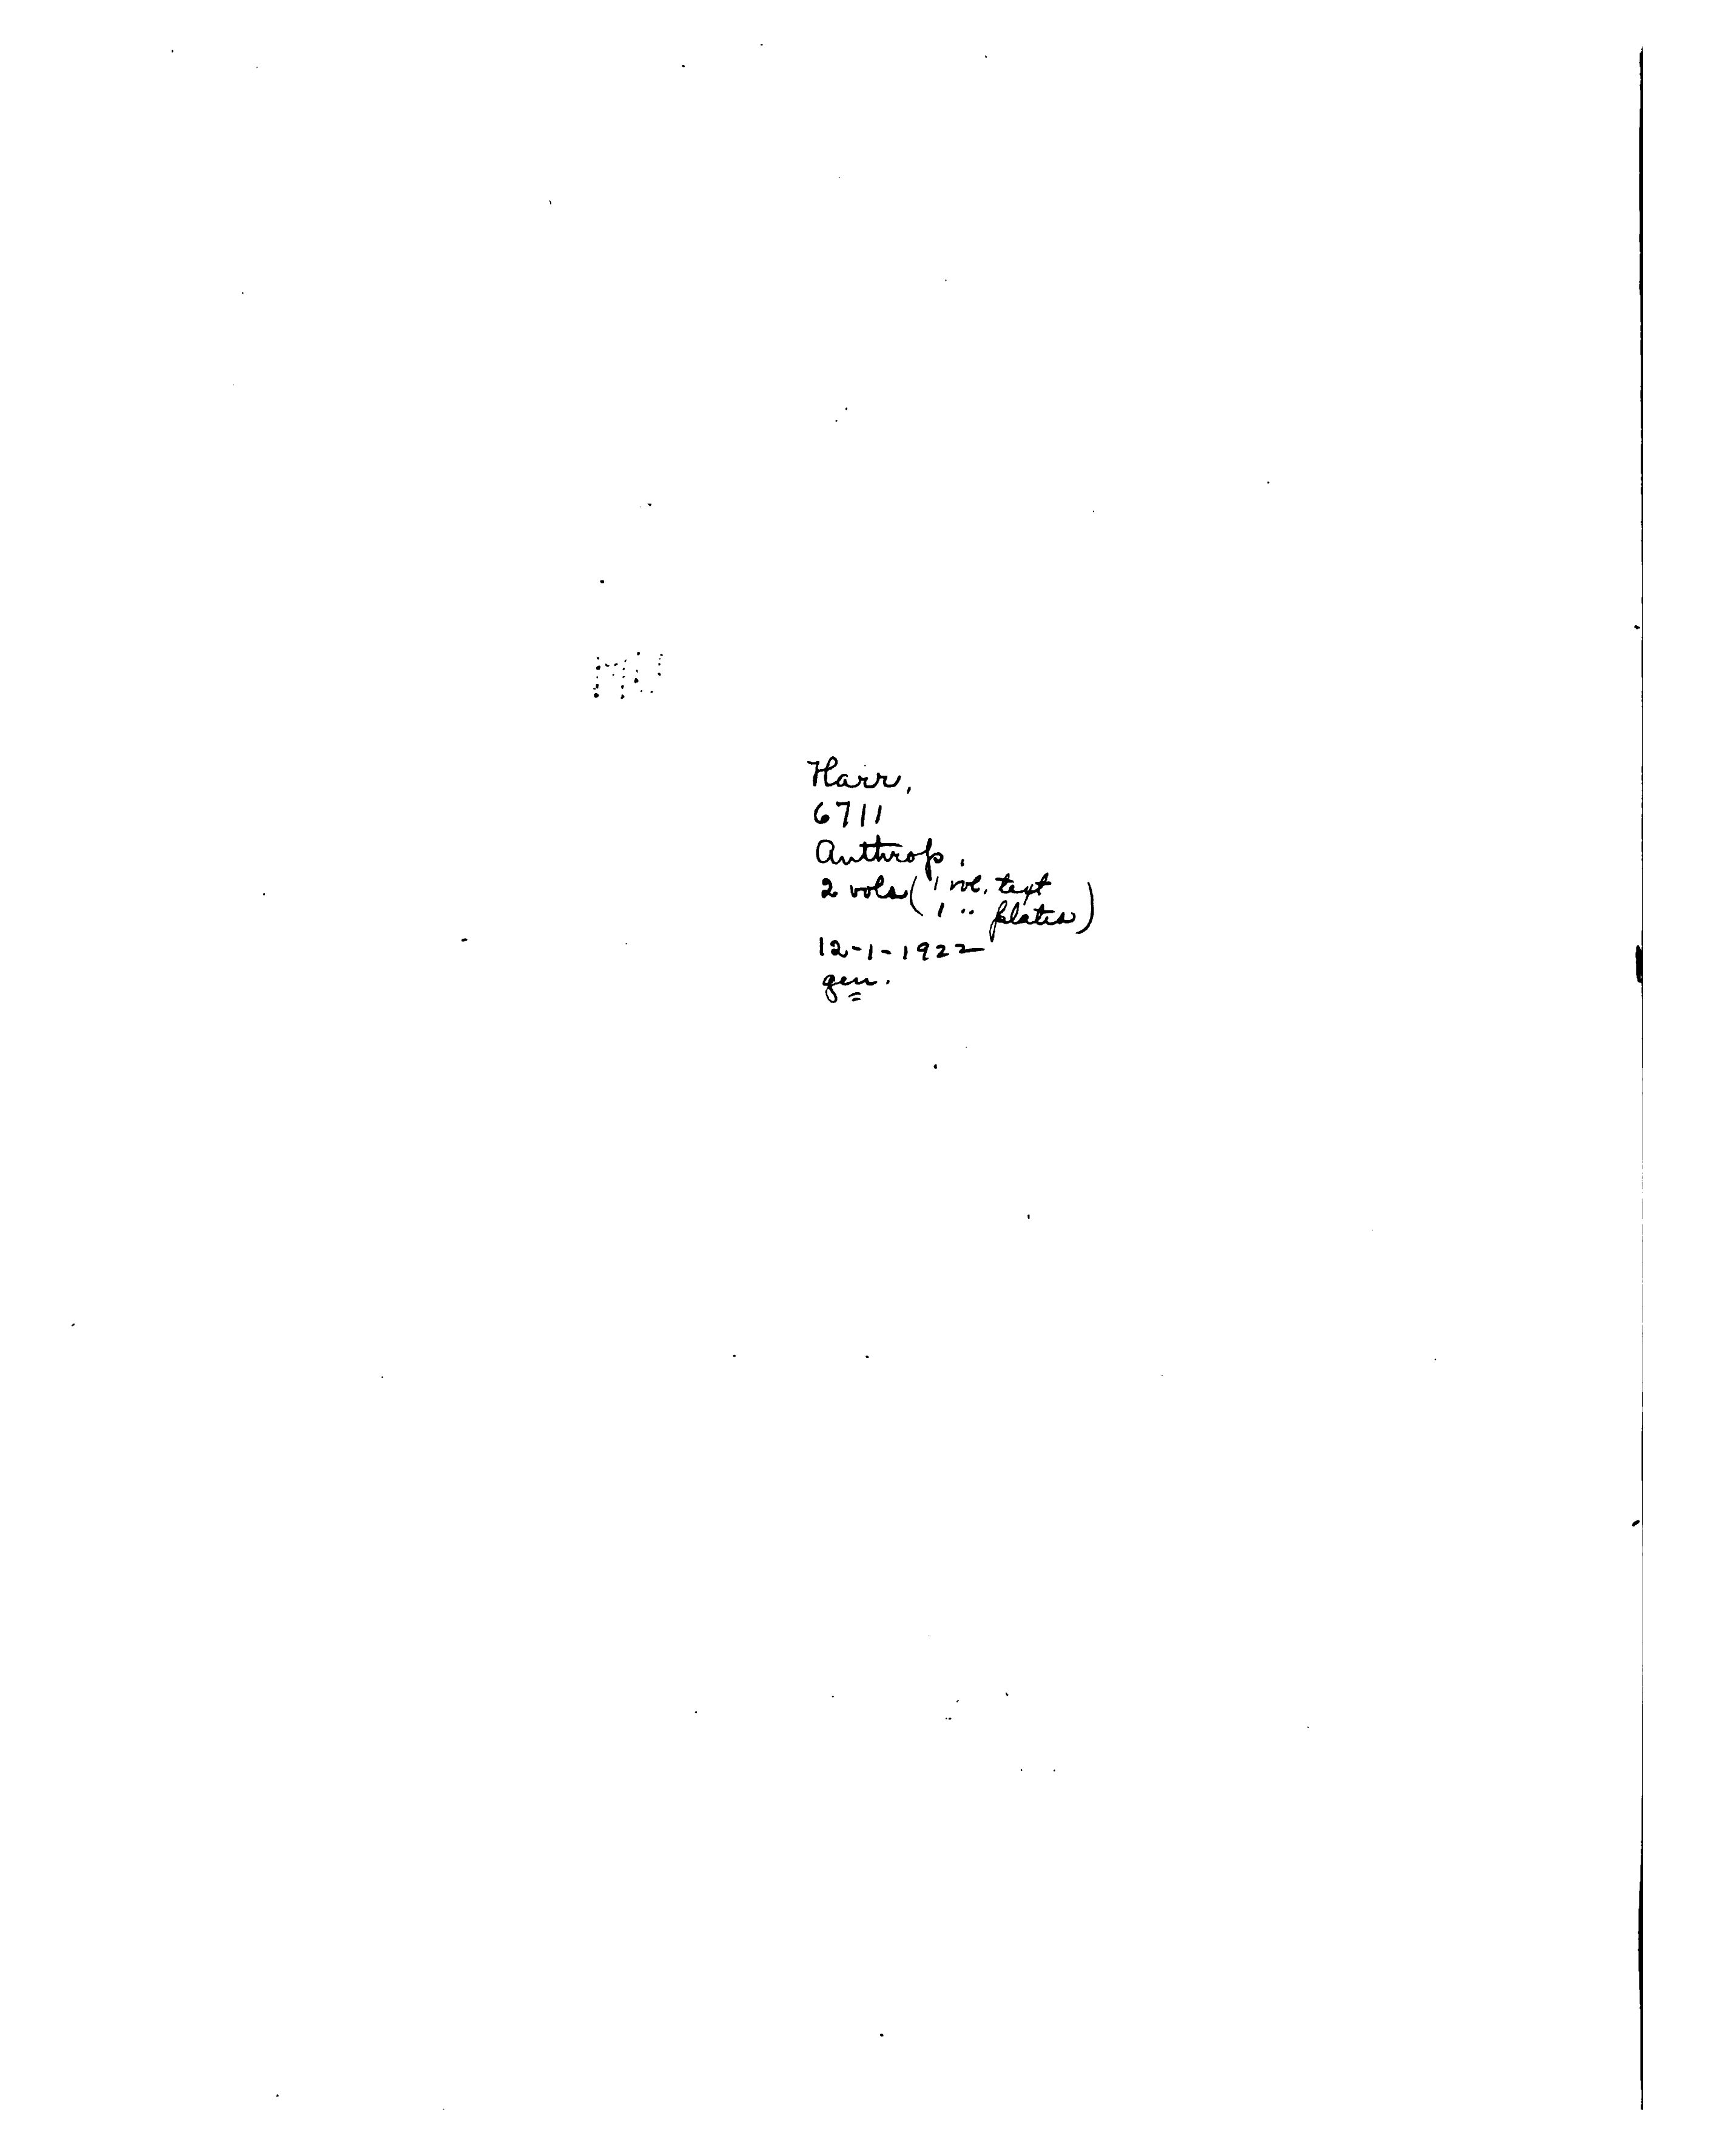 Harr,
6711
Anthrop.
2 vols ( 1 vol. text
1 " plates )
12-1-1922
gen.